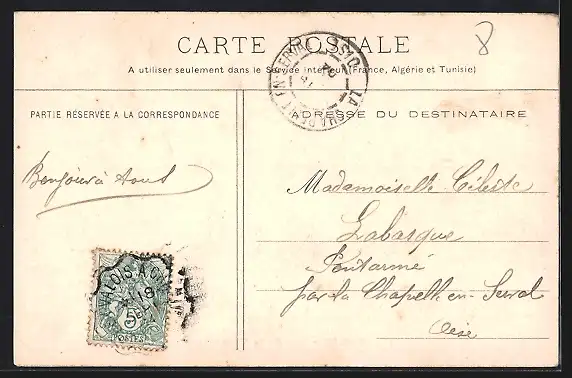 8
CARTE POSTALE
A utiliser seulement dans le Service intérieur (France, Algérie et Tunisie)
PARTIE RÉSERVÉE A LA CORRESPONDANCE
ADRESSE DU DESTINATAIRE
LA CHAPELLE EN-SERVAL
Bonjour à tous
Mademoiselle Céleste
Labasque
Pontarmé
par La Chapelle en Serval
Oise
VALOIS A
18
5
POSTES